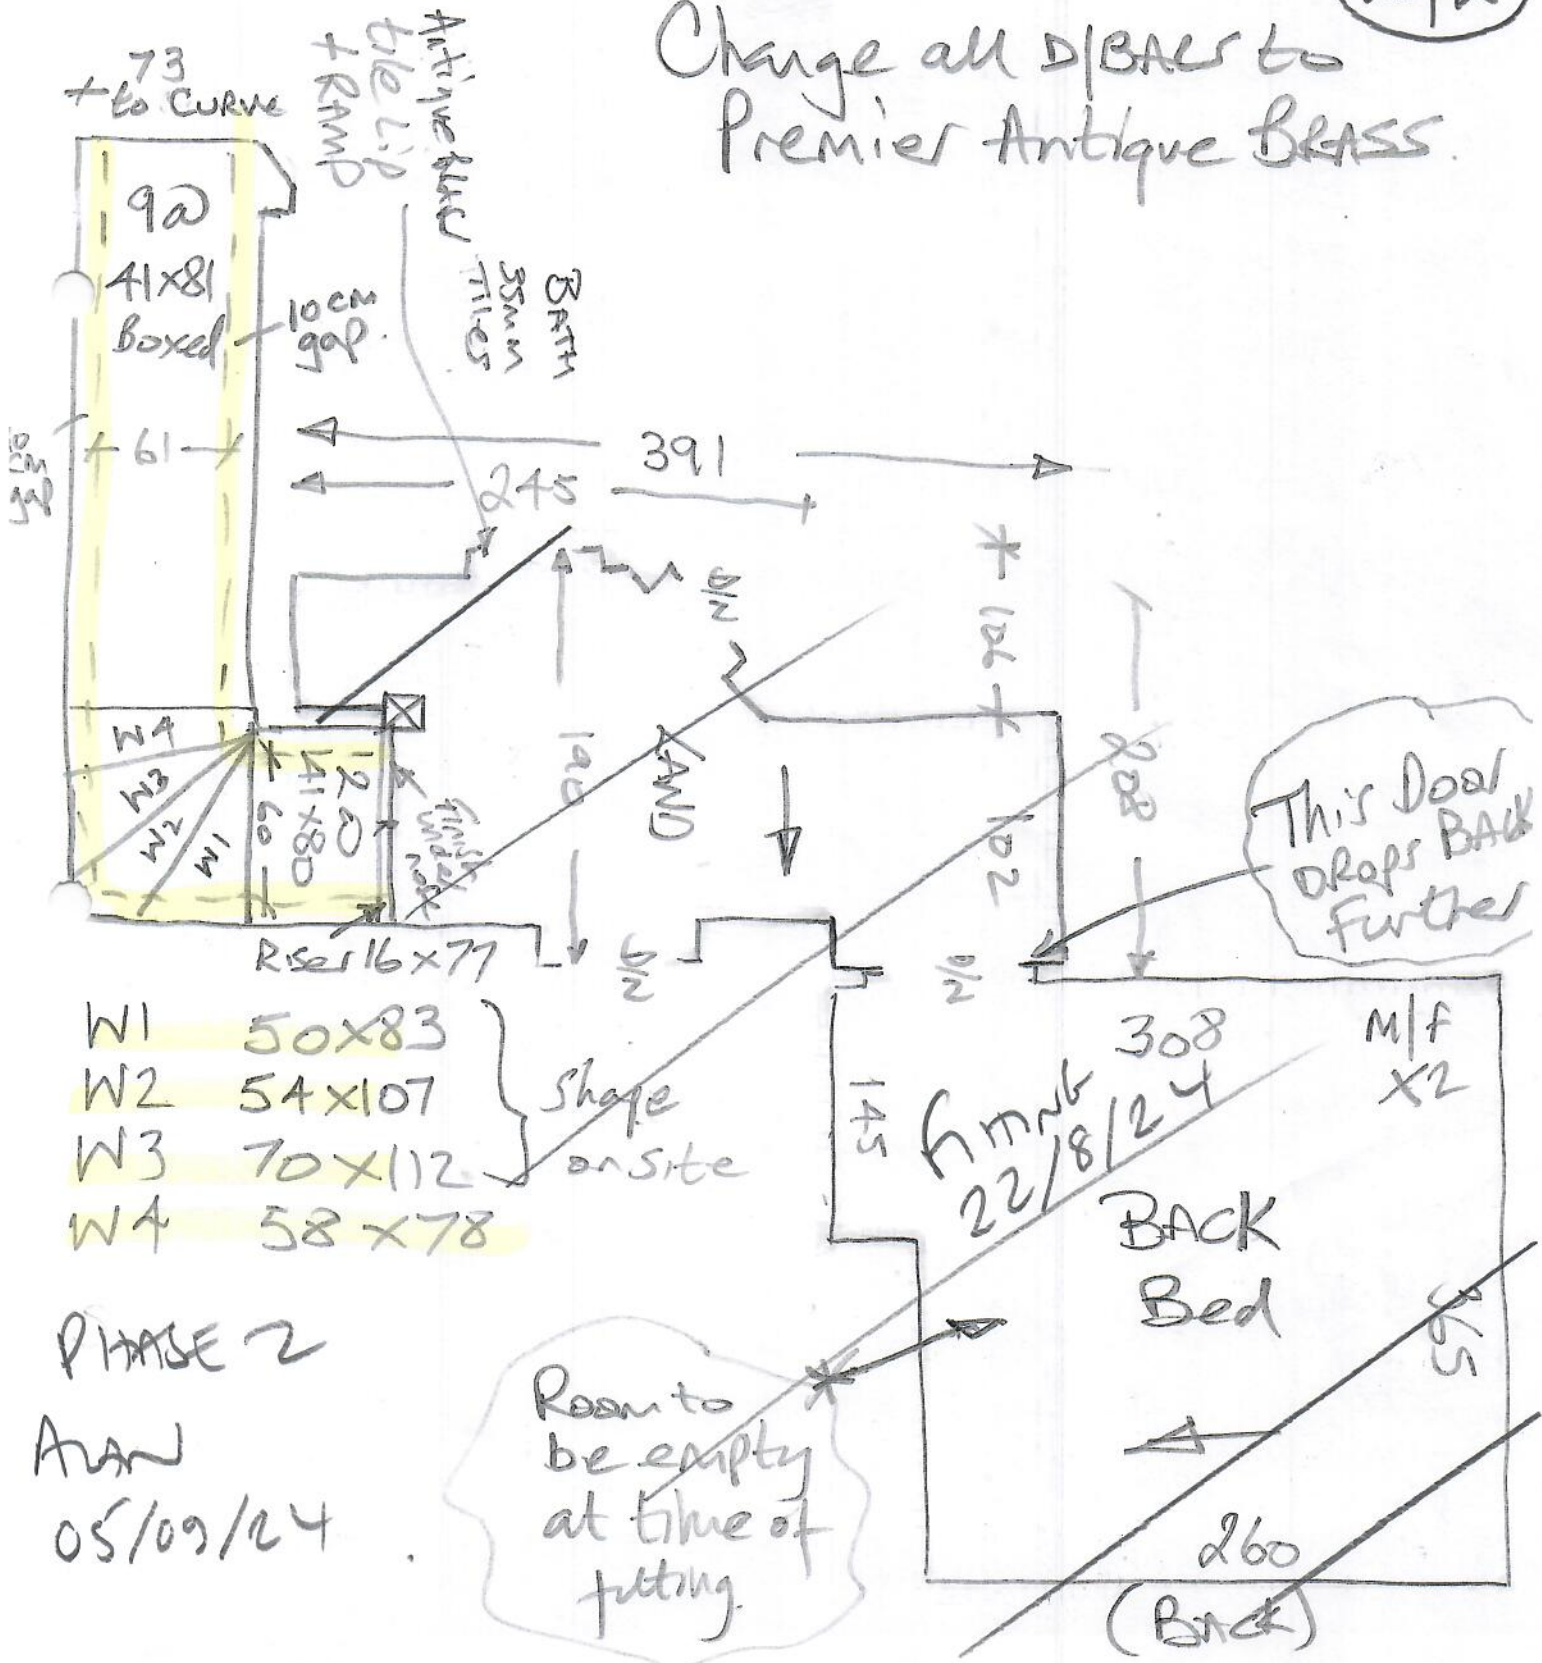 Change all D/BARS to
Premier Antique BRASS.
73
to CURVE
Antique BRASS
tile Lip
+ RAMP
9@
41x81
Boxed
10cm
gap.
BATH
35mm
Tiles
61
391
245
106
208
190
LAND
102
D/Z
W4
W3
W2
W1
12@
41x80
60
Finish
under
nose
Riser 16x77
D/Z
D/Z
This Door
DRops BACK
Further
W1 50x83
W2 54x107
W3 70x112
W4 58x78
Shape
on site
308
M/F
X2
145
Fitting
22/8/24
BACK
Bed
365
PHASE 2
ALAN
05/09/24
Room to
be empty
at time of
fitting.
260
(BACK)